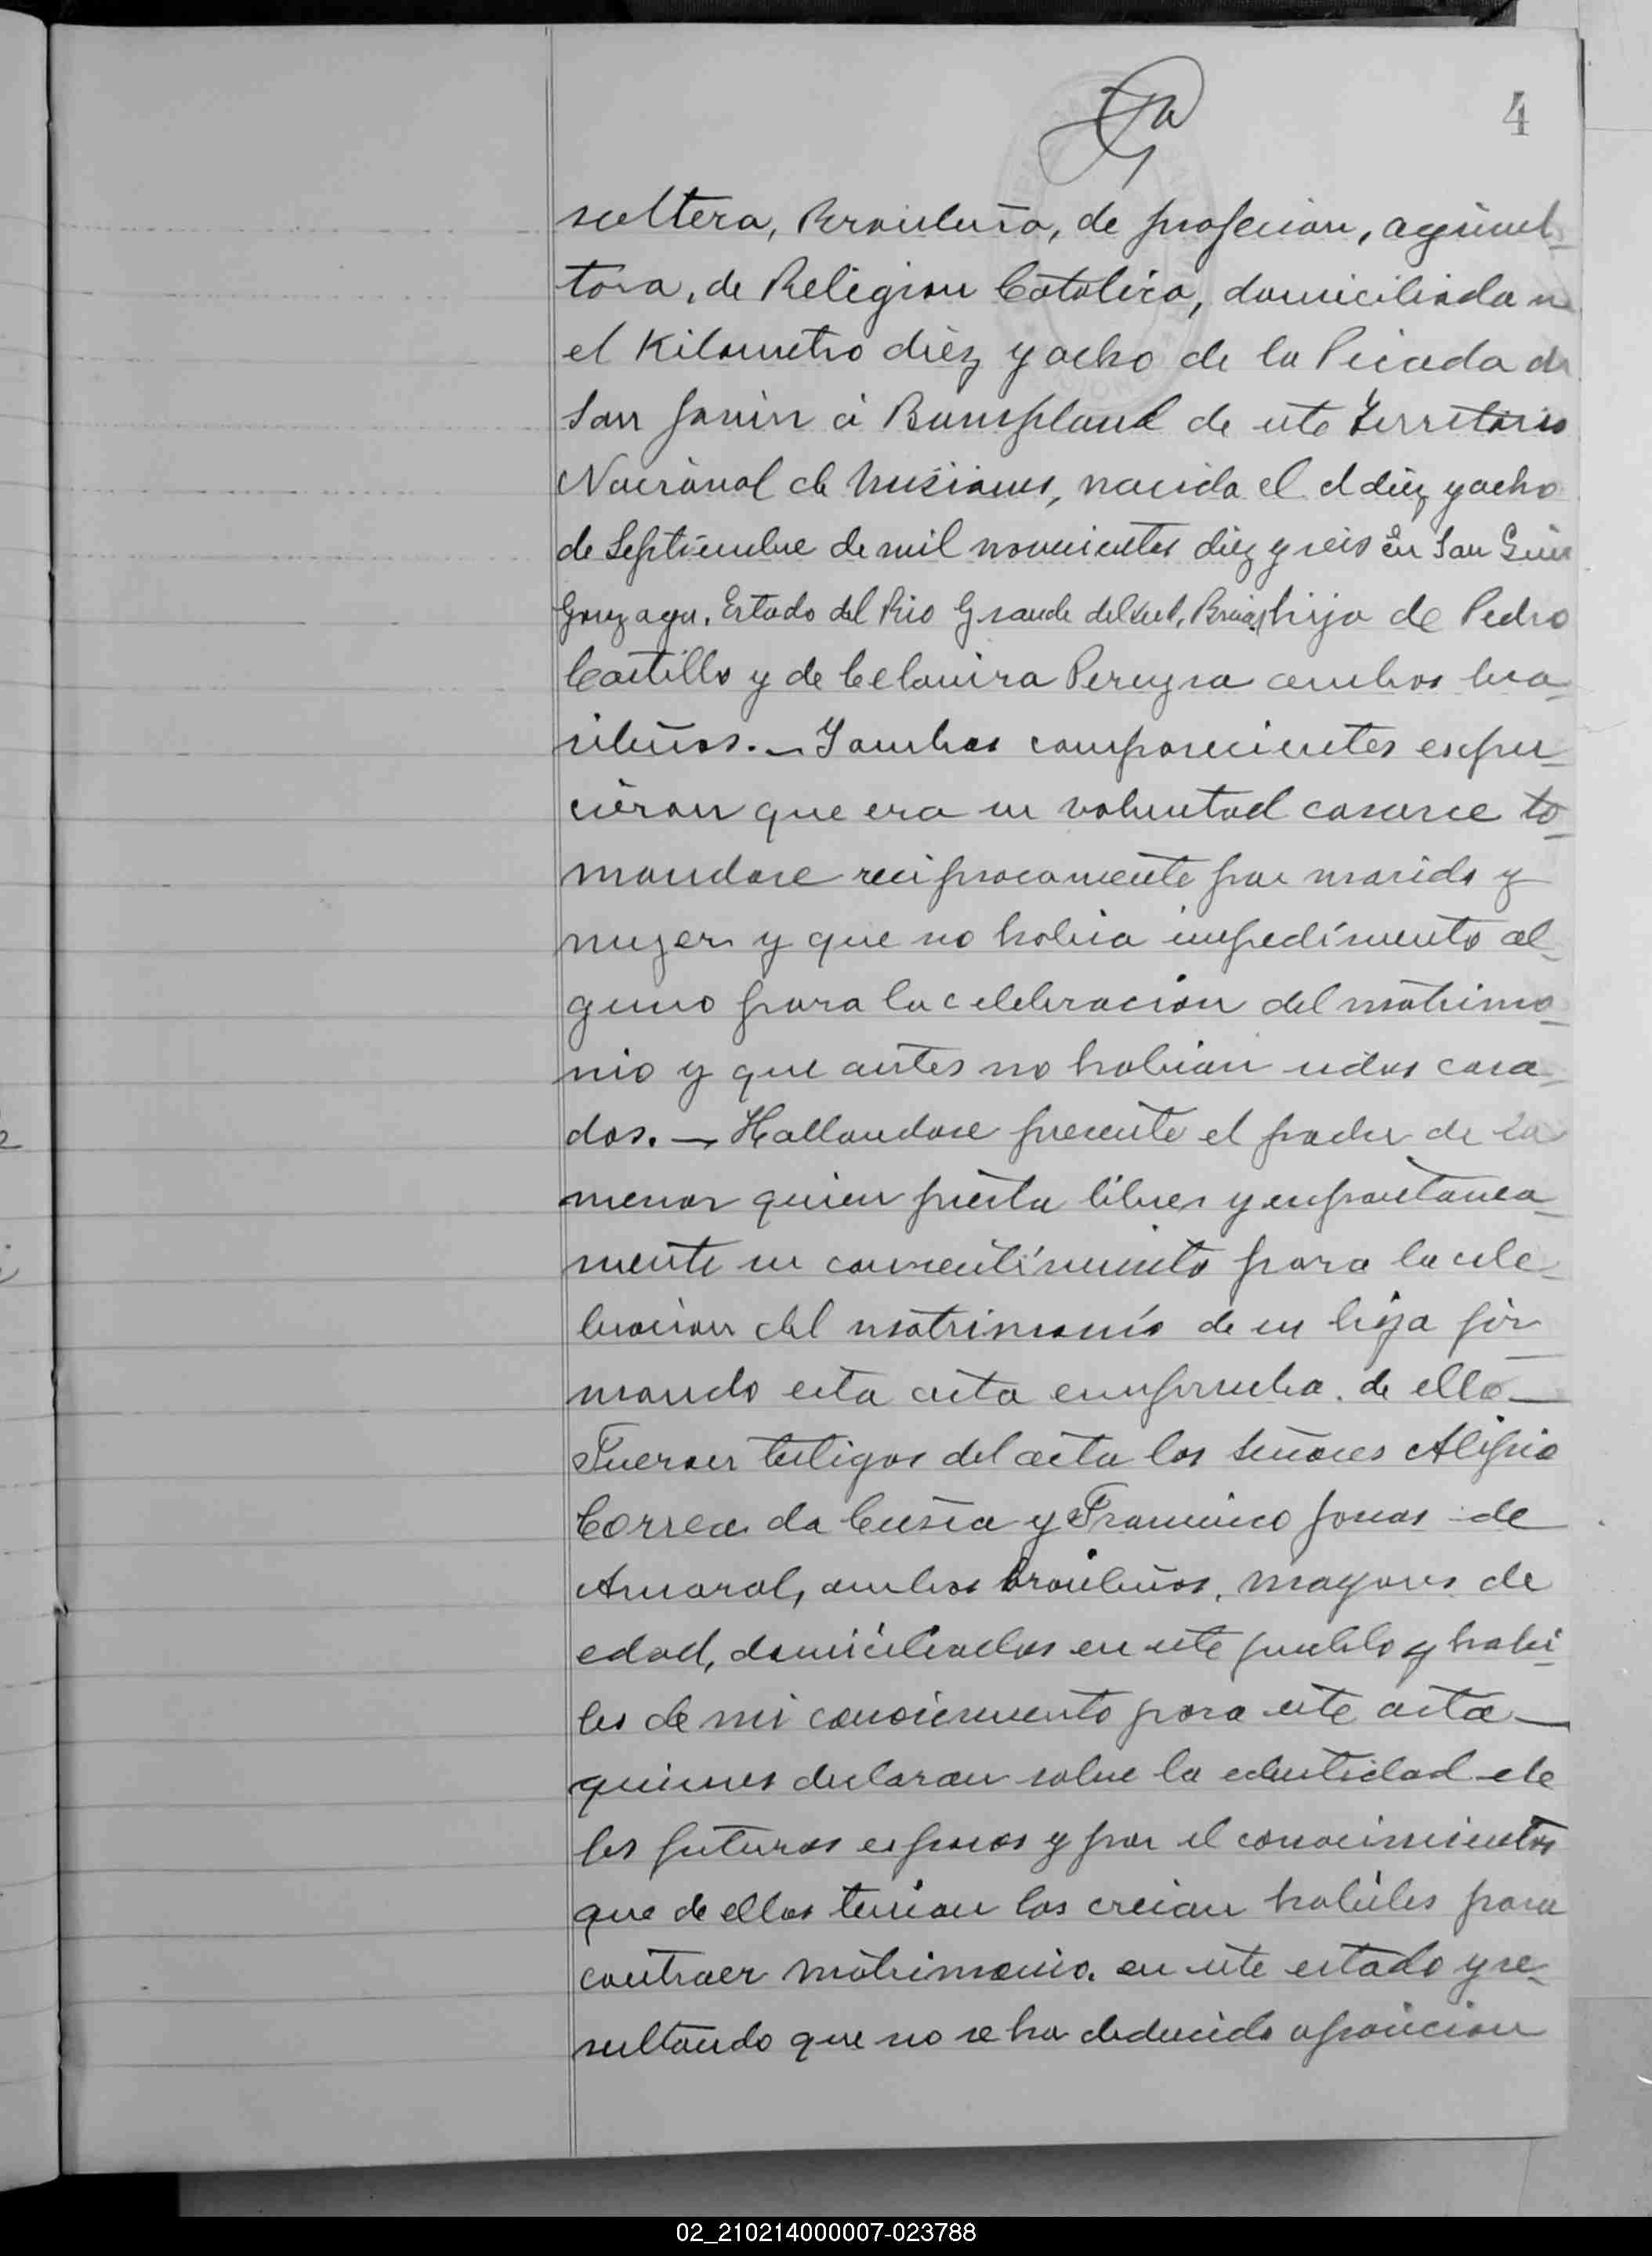 4
soltera, Brasileña, de profecion, agricul-
tora, de Religion Católica, domiciliada en
el Kilometro diéz y ocho de la Picada de
San Javier á Bompland de este Territorio
Nacional de Misiones, nacida el el diéz y ocho
de Septiembre de mil novecientos diez y seis en San Luis
Gonzaga, Estado del Rio Grande del Sul, Brasil, hija de Pedro
Castillo y de Celanira Pereyra ambos bra-
sileños. — Y ambos comparecientes expu-
cieron que era su voluntad casarce to-
mandose reciprocamente por marido y
mujer y que no habia impedimento al-
guno para la celebracion del matrimo-
nio y que antes no habian sidos casa-
dos. — Hallandose presente el padre de la
menor quien presta libre y espontanea-
mente su consentimiento para la cele-
bracion del matrimonio de su hija fir-
mando esta acta en prueba de ello —
Fueron testigos del acta los señores Alipio
Correa da Cuña y Francisco Jonas de
Amaral, ambos brasileños, mayores de
edad, domiciliados en este pueblo y habi-
les de mi conocimiento para este acta —
quienes declaran sobre la edentidad de
los futuros esposos y por el conocimientos
que de ellos tenian los creian habiles para
contraer matrimonio. en este estado y re-
sultando que no se ha deducido oposicion
02_210214000007-023788